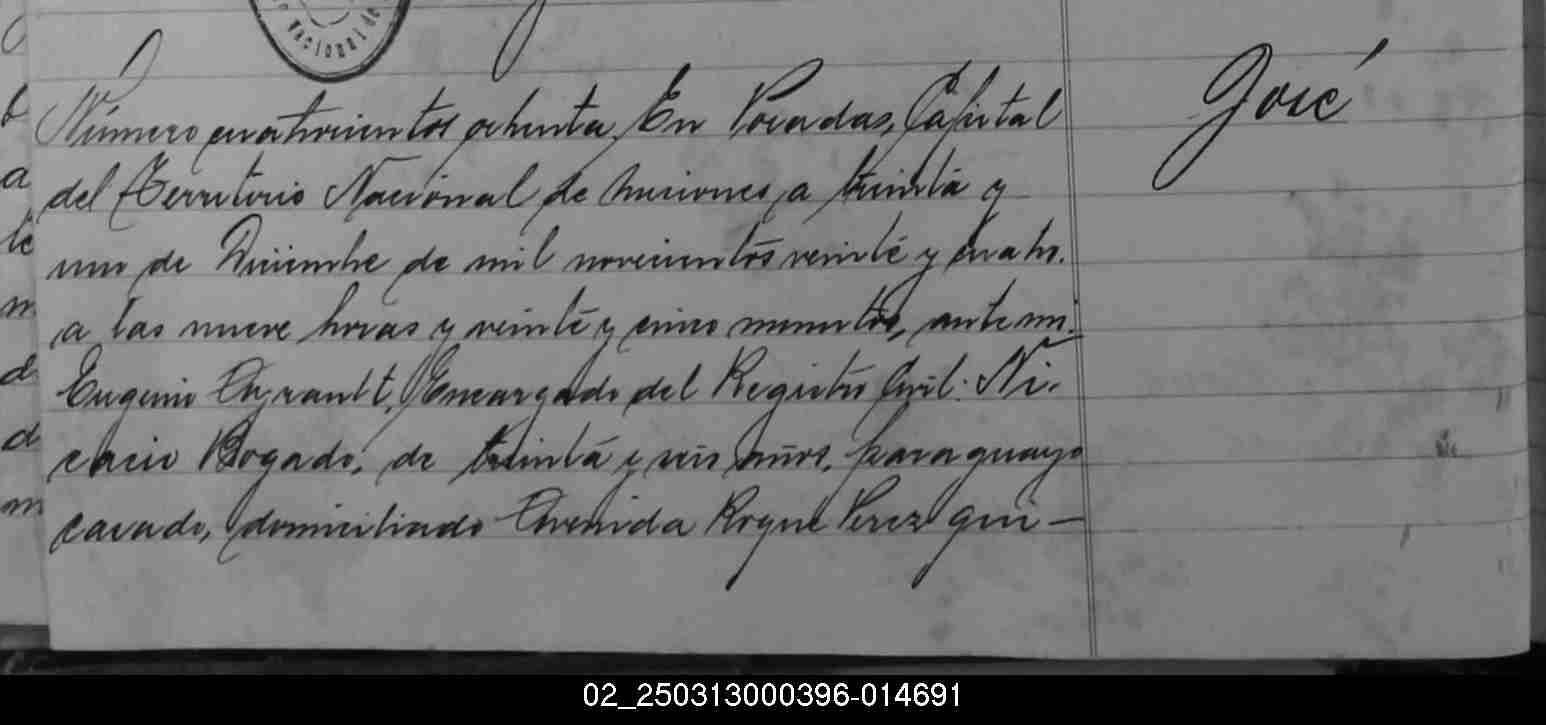 Nacional de
José
Número cuatrocientos ochenta, En Posadas, Capital
del Territorio Nacional de Misiones, a treinta y
uno de Diciembre de mil novecientos veinte y cuatro.
a las nueve horas y veinte y cinco minutos, ante mi.
Eugenio Ayrault, Encargado del Registro Civil: Ni-
cacio Bogado, de treinta y seis años, paraguayo
casado, domiciliado Avenida Roque Perez qui-
02_250313000396-014691